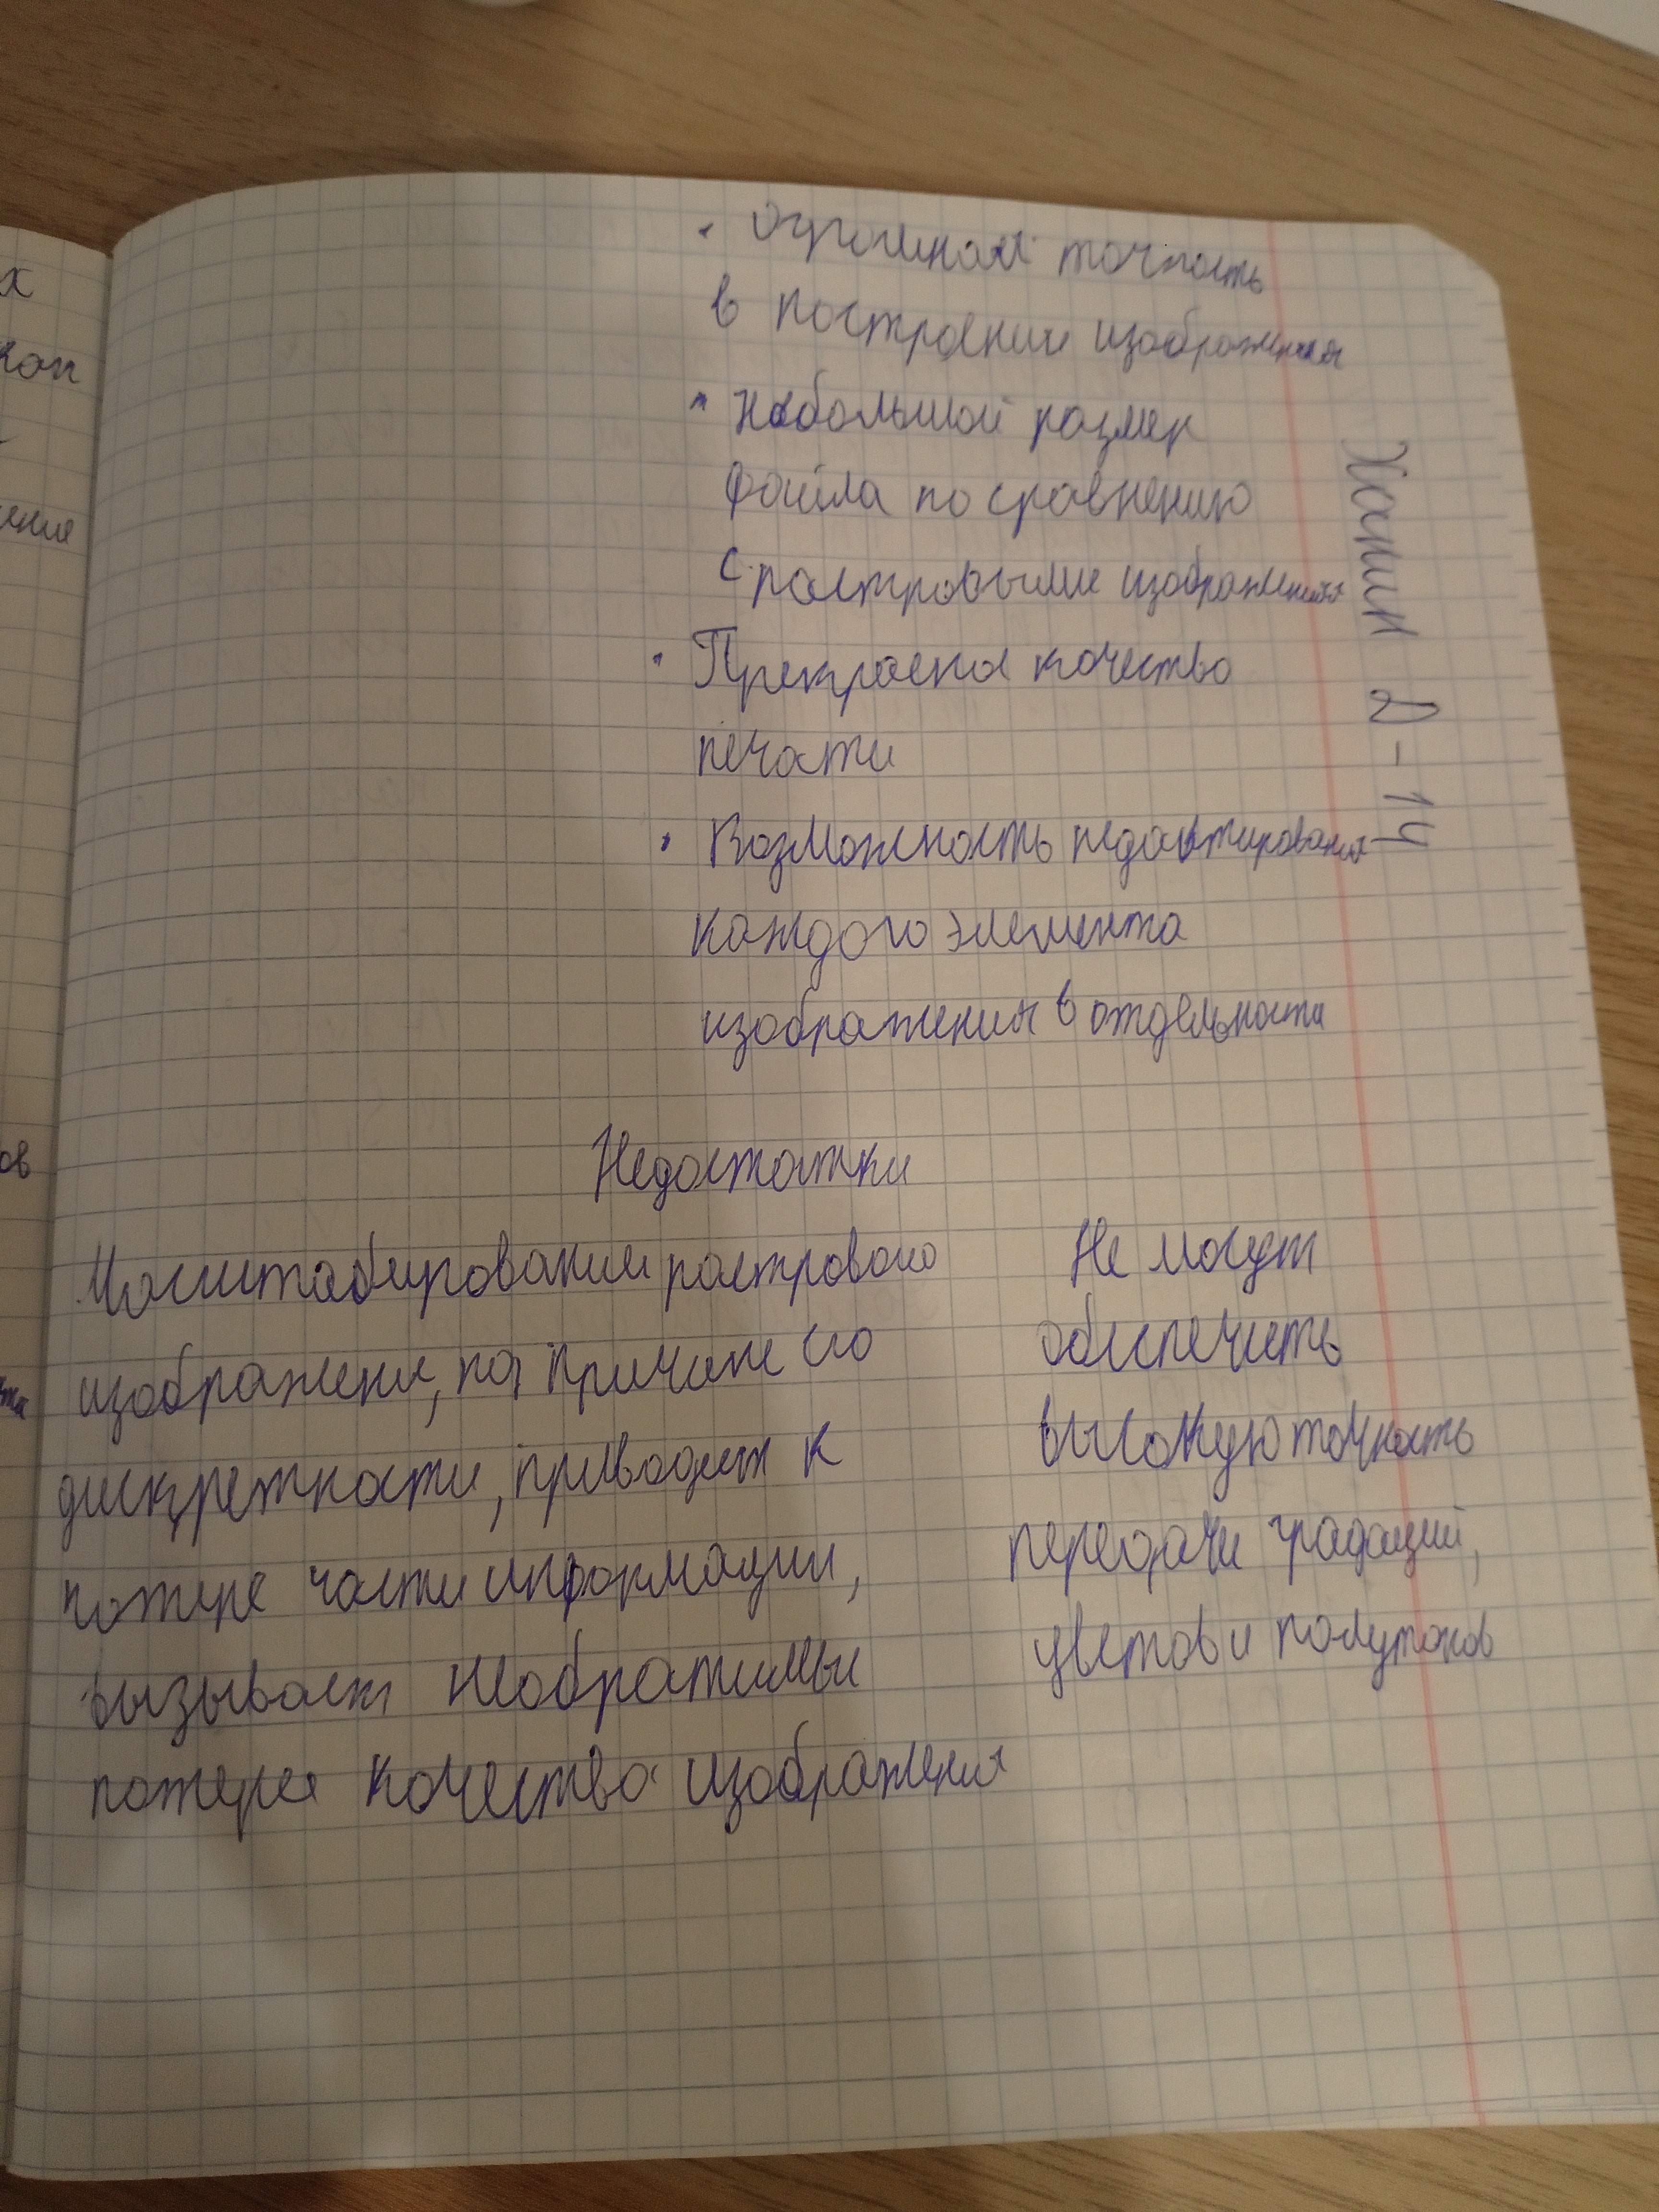 • Огромная точность
в построении изображения
• Небольшой размер
файла по сравнению
с растровыми изображениях
• Прекрасная качество
печати
• Возможность редактирования
каждого элемента
изображения в отдельности
Ханин Д-14
Недостатки
Масштабирования растрового
изображени, по причине его
дискретности, приводит к
потере части информации,
вызывает необратимы
потерея качества изображения
Не могут
обеспечить
высокую точность
передачи градаций,
цветов и полутонов
х
ение
ов